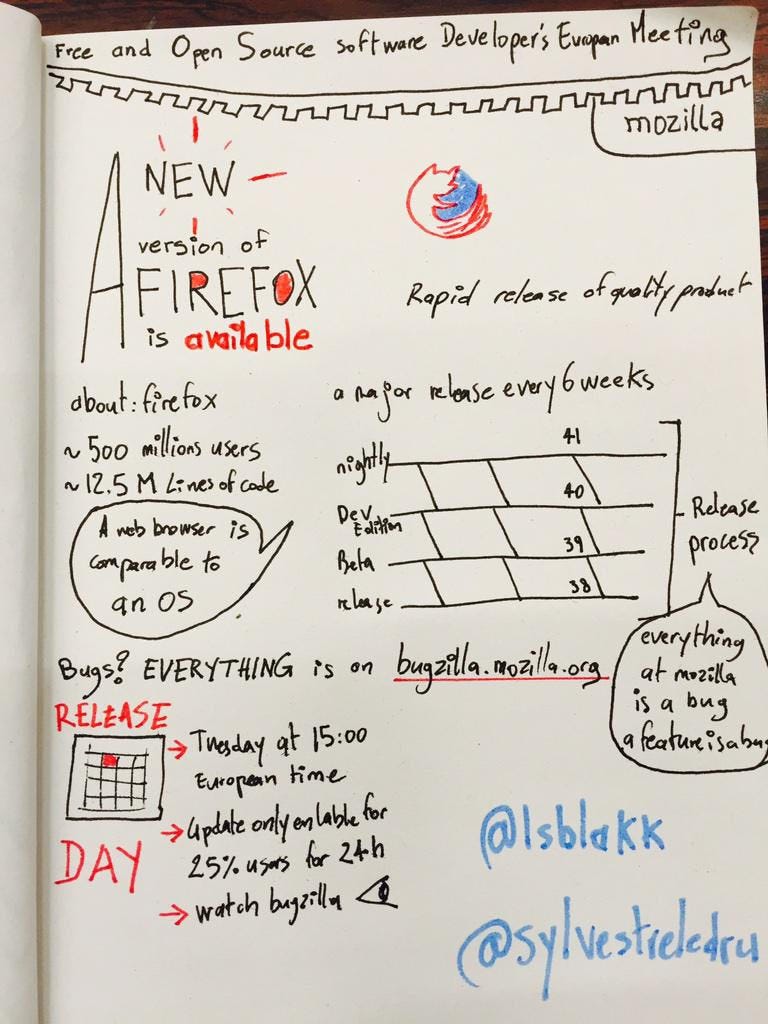 Free and Open Source software Developer's European Meeting
mozilla
A NEW
version of
FIREFOX
is available
Rapid release of quality product
about:firefox
~ 500 millions users
~ 12.5 M Lines of code
A web browser is
comparable to
an OS
a major release every 6 weeks
41
nightly
40
Dev
Edition
39
Beta
38
release
Release
process
everything
at mozilla
is a bug
a feature is a bug
Bugs? EVERYTHING is on bugzilla.mozilla.org
RELEASE
DAY
→ Tuesday at 15:00
European time
→ Update only enlable for
25% users for 24h
→ watch bugzilla
@lsblakk
@sylvestreledru